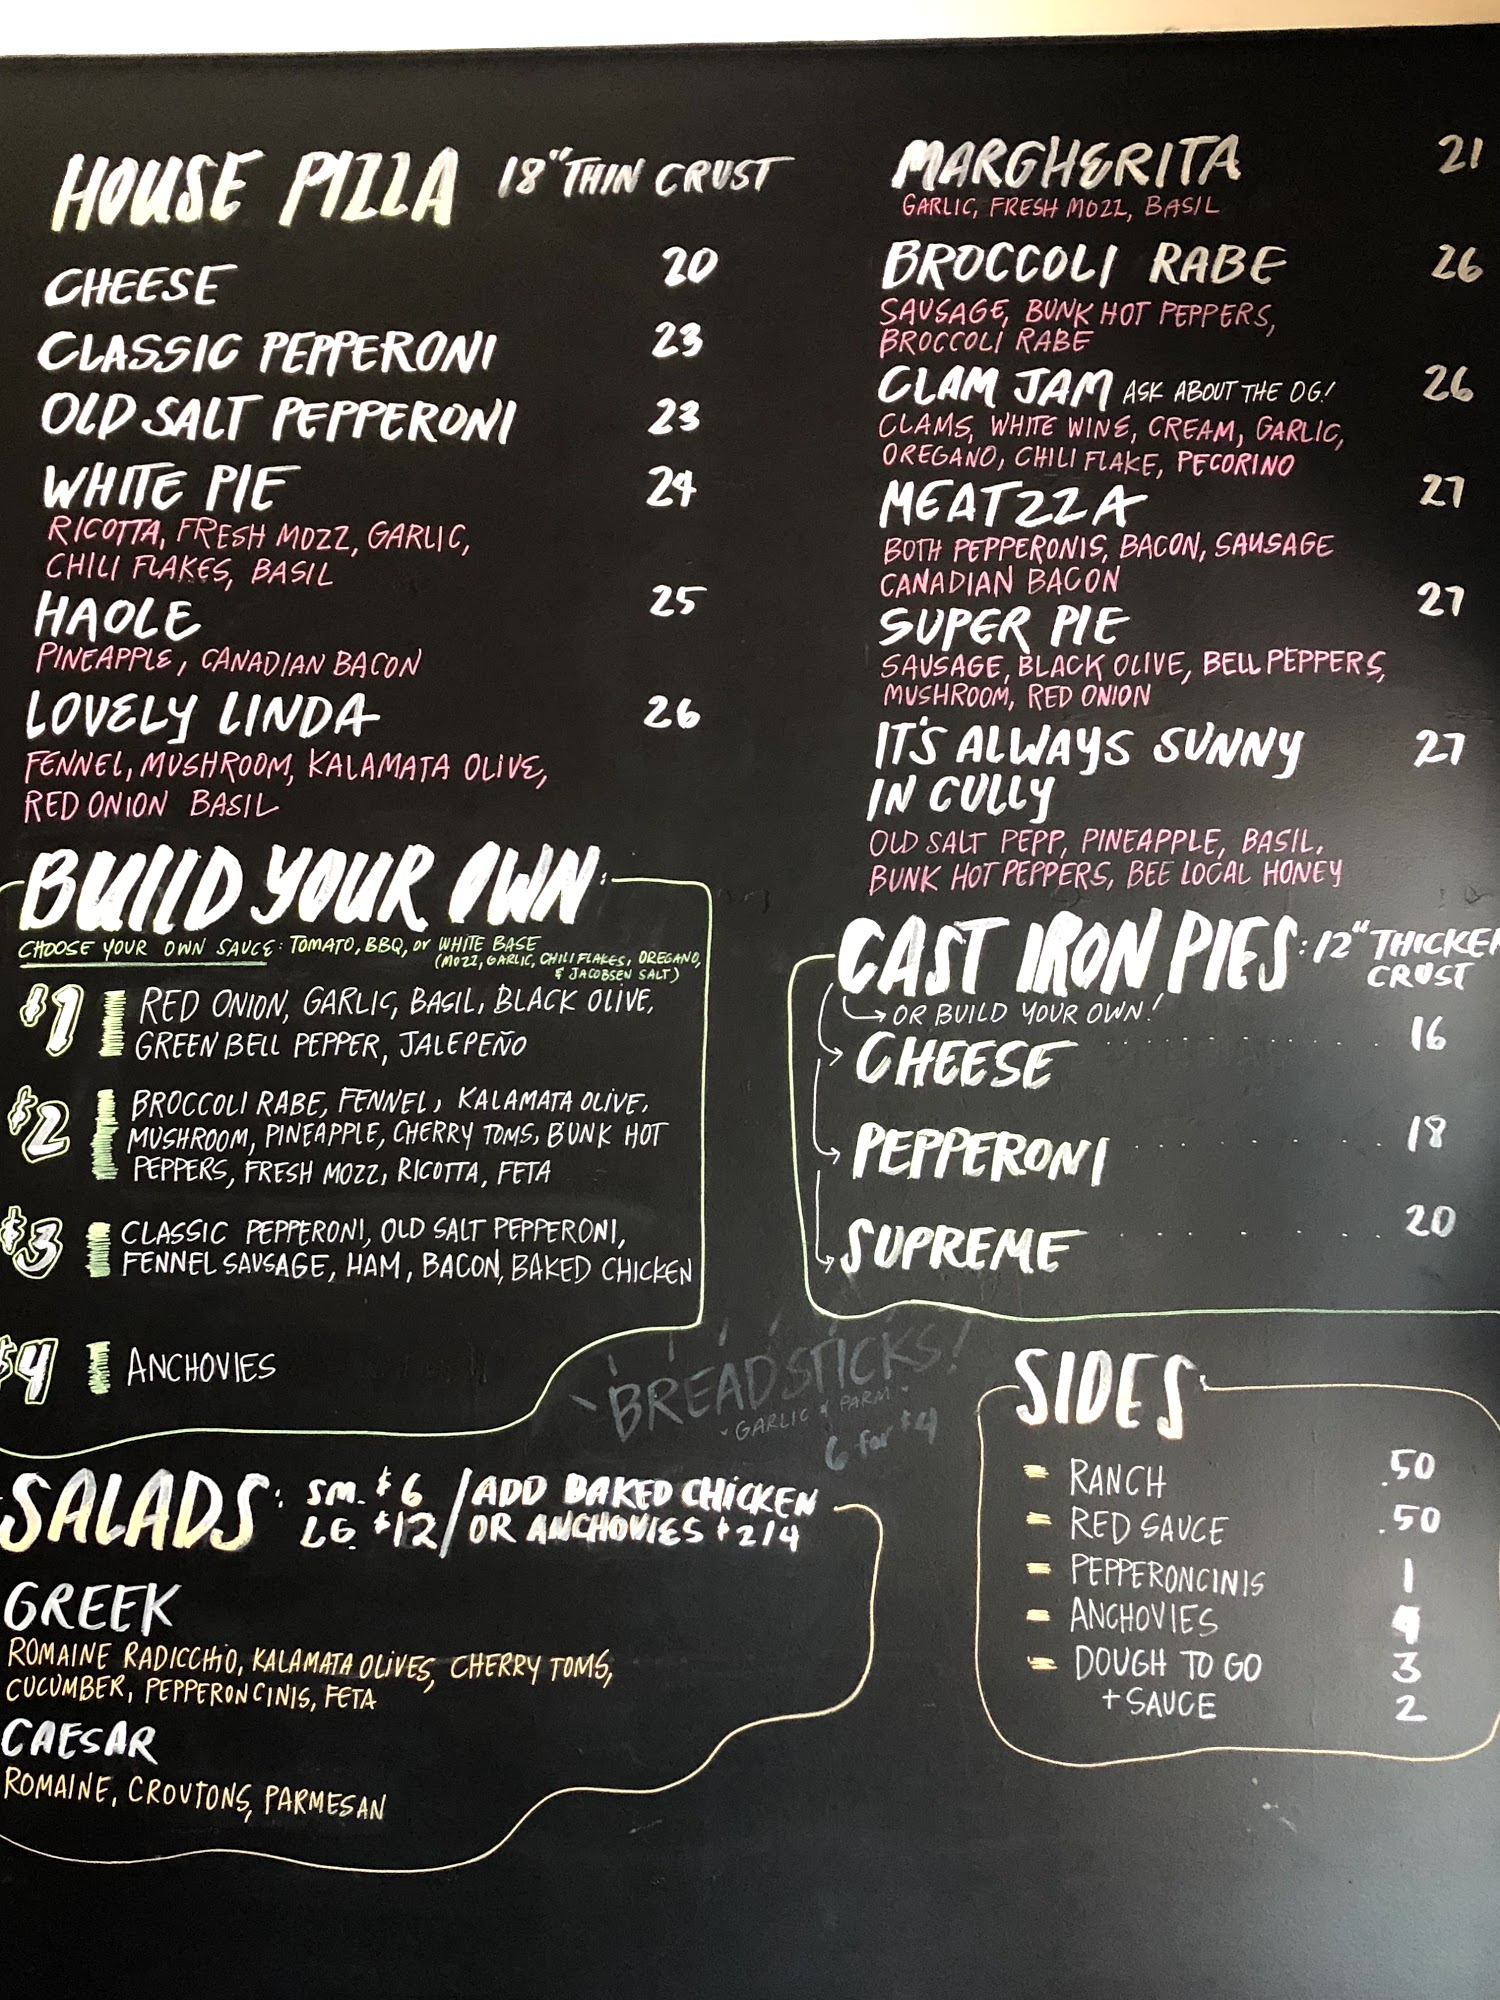 HOUSE PIZZA 18" THIN CRUST
CHEESE 20
CLASSIC PEPPERONI 23
OLD SALT PEPPERONI 23
WHITE PIE 24
RICOTTA, FRESH MOZZ, GARLIC,
CHILI FLAKES, BASIL
HAOLE 25
PINEAPPLE, CANADIAN BACON
LOVELY LINDA 26
FENNEL, MUSHROOM, KALAMATA OLIVE,
RED ONION BASIL
MARGHERITA 21
GARLIC, FRESH MOZZ, BASIL
BROCCOLI RABE 26
SAUSAGE, BUNK HOT PEPPERS,
BROCCOLI RABE
CLAM JAM ASK ABOUT THE OG! 26
CLAMS, WHITE WINE, CREAM, GARLIC,
OREGANO, CHILI FLAKE, PECORINO
MEATZZA 27
BOTH PEPPERONIS, BACON, SAUSAGE
CANADIAN BACON
SUPER PIE 27
SAUSAGE, BLACK OLIVE, BELL PEPPERS,
MUSHROOM, RED ONION
IT'S ALWAYS SUNNY 27
IN CULLY
OLD SALT PEPP, PINEAPPLE, BASIL,
BUNK HOT PEPPERS, BEE LOCAL HONEY
BUILD YOUR OWN:
CHOOSE YOUR OWN SAUCE: TOMATO, BBQ, or WHITE BASE
(MOZZ, GARLIC, CHILI FLAKES, OREGANO,
& JACOBSEN SALT)
$1 RED ONION, GARLIC, BASIL, BLACK OLIVE,
GREEN BELL PEPPER, JALEPEÑO
$2 BROCCOLI RABE, FENNEL, KALAMATA OLIVE,
MUSHROOM, PINEAPPLE, CHERRY TOMS, BUNK HOT
PEPPERS, FRESH MOZZ, RICOTTA, FETA
$3 CLASSIC PEPPERONI, OLD SALT PEPPERONI,
FENNEL SAUSAGE, HAM, BACON, BAKED CHICKEN
$4 ANCHOVIES
CAST IRON PIES: 12" THICKER
CRUST
OR BUILD YOUR OWN!
CHEESE 16
PEPPERONI 18
SUPREME 20
BREADSTICKS!
GARLIC & PARM
6 for $4
SALADS: SM. $6 / ADD BAKED CHICKEN
LG. $12 / OR ANCHOVIES $2/4
GREEK
ROMAINE RADICCHIO, KALAMATA OLIVES, CHERRY TOMS,
CUCUMBER, PEPPERONCINIS, FETA
CAESAR
ROMAINE, CROUTONS, PARMESAN
SIDES
RANCH .50
RED SAUCE .50
PEPPERONCINIS 1
ANCHOVIES 4
DOUGH TO GO 3
+ SAUCE 2